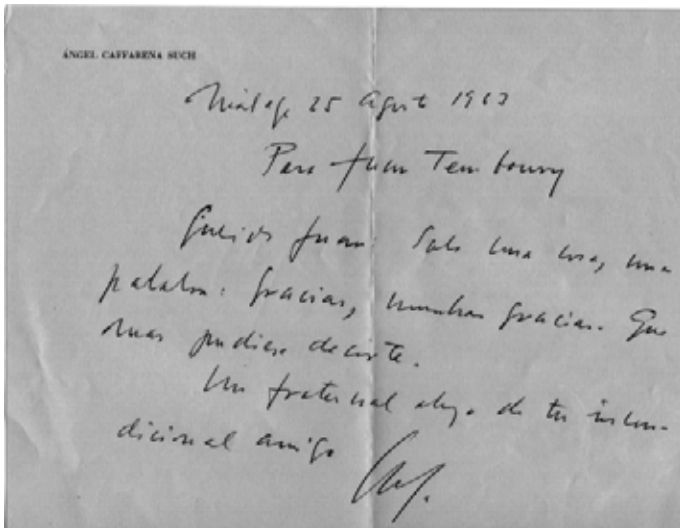 ÁNGEL CAFFARENA SUCH
Málaga 25 Agosto 1963
Para Juan Temboury
Querido Juan: Solo una cosa, una
palabra: gracias, muchas gracias. Que
mas pudiese decirte.
Un fraternal abrazo de tu incon-
dicional amigo